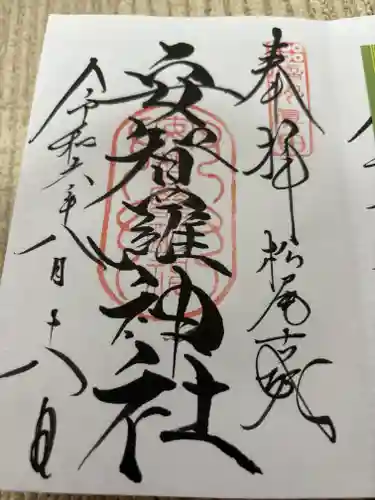 奉拝 松尾古城
安智羅神社
令和六年八月十八日